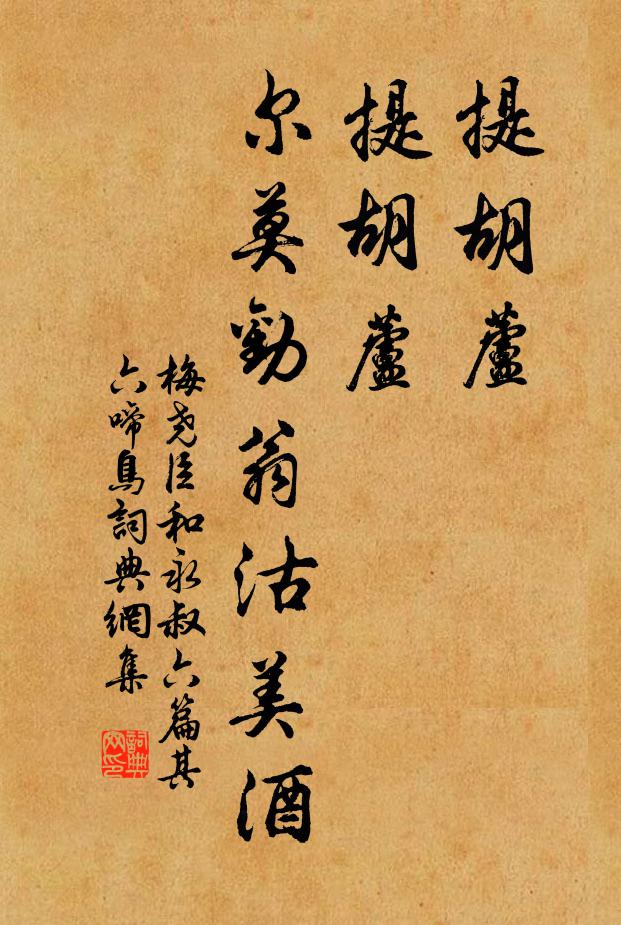 提胡蘆
提胡蘆
尔莫勸翁沽美酒
梅尧臣和永叔六篇其
六啼鳥詞典網集
詞典
网印